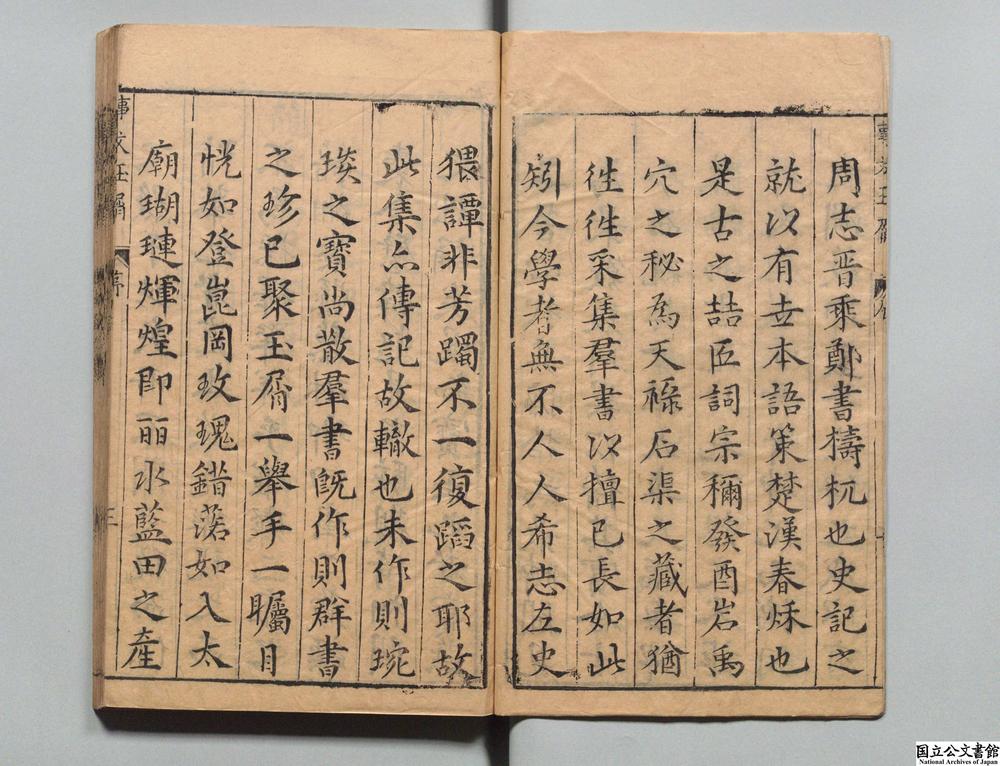 周志晋乘鄭書檮杌也史記之
就以有𠀍本語策楚漢春秌也
是古之喆匠詞宗穪發酉岩禹
穴之秘為天祿石渠之藏者猶
徃徃采集羣書以擅已長如此
矧今學者無不人人希志左史
猥譚非芳躅不一復蹈之耶故
此集亦傳記故轍也未作則琬
琰之寶尚散羣書旣作則群書
之珍已聚玉屑一舉手一矚目
恍如登崑岡玫瑰錯落如入太
廟瑚璉煇煌即丽水藍田之産
事文玉屑
序
三
国立公文書館
National Archives of Japan